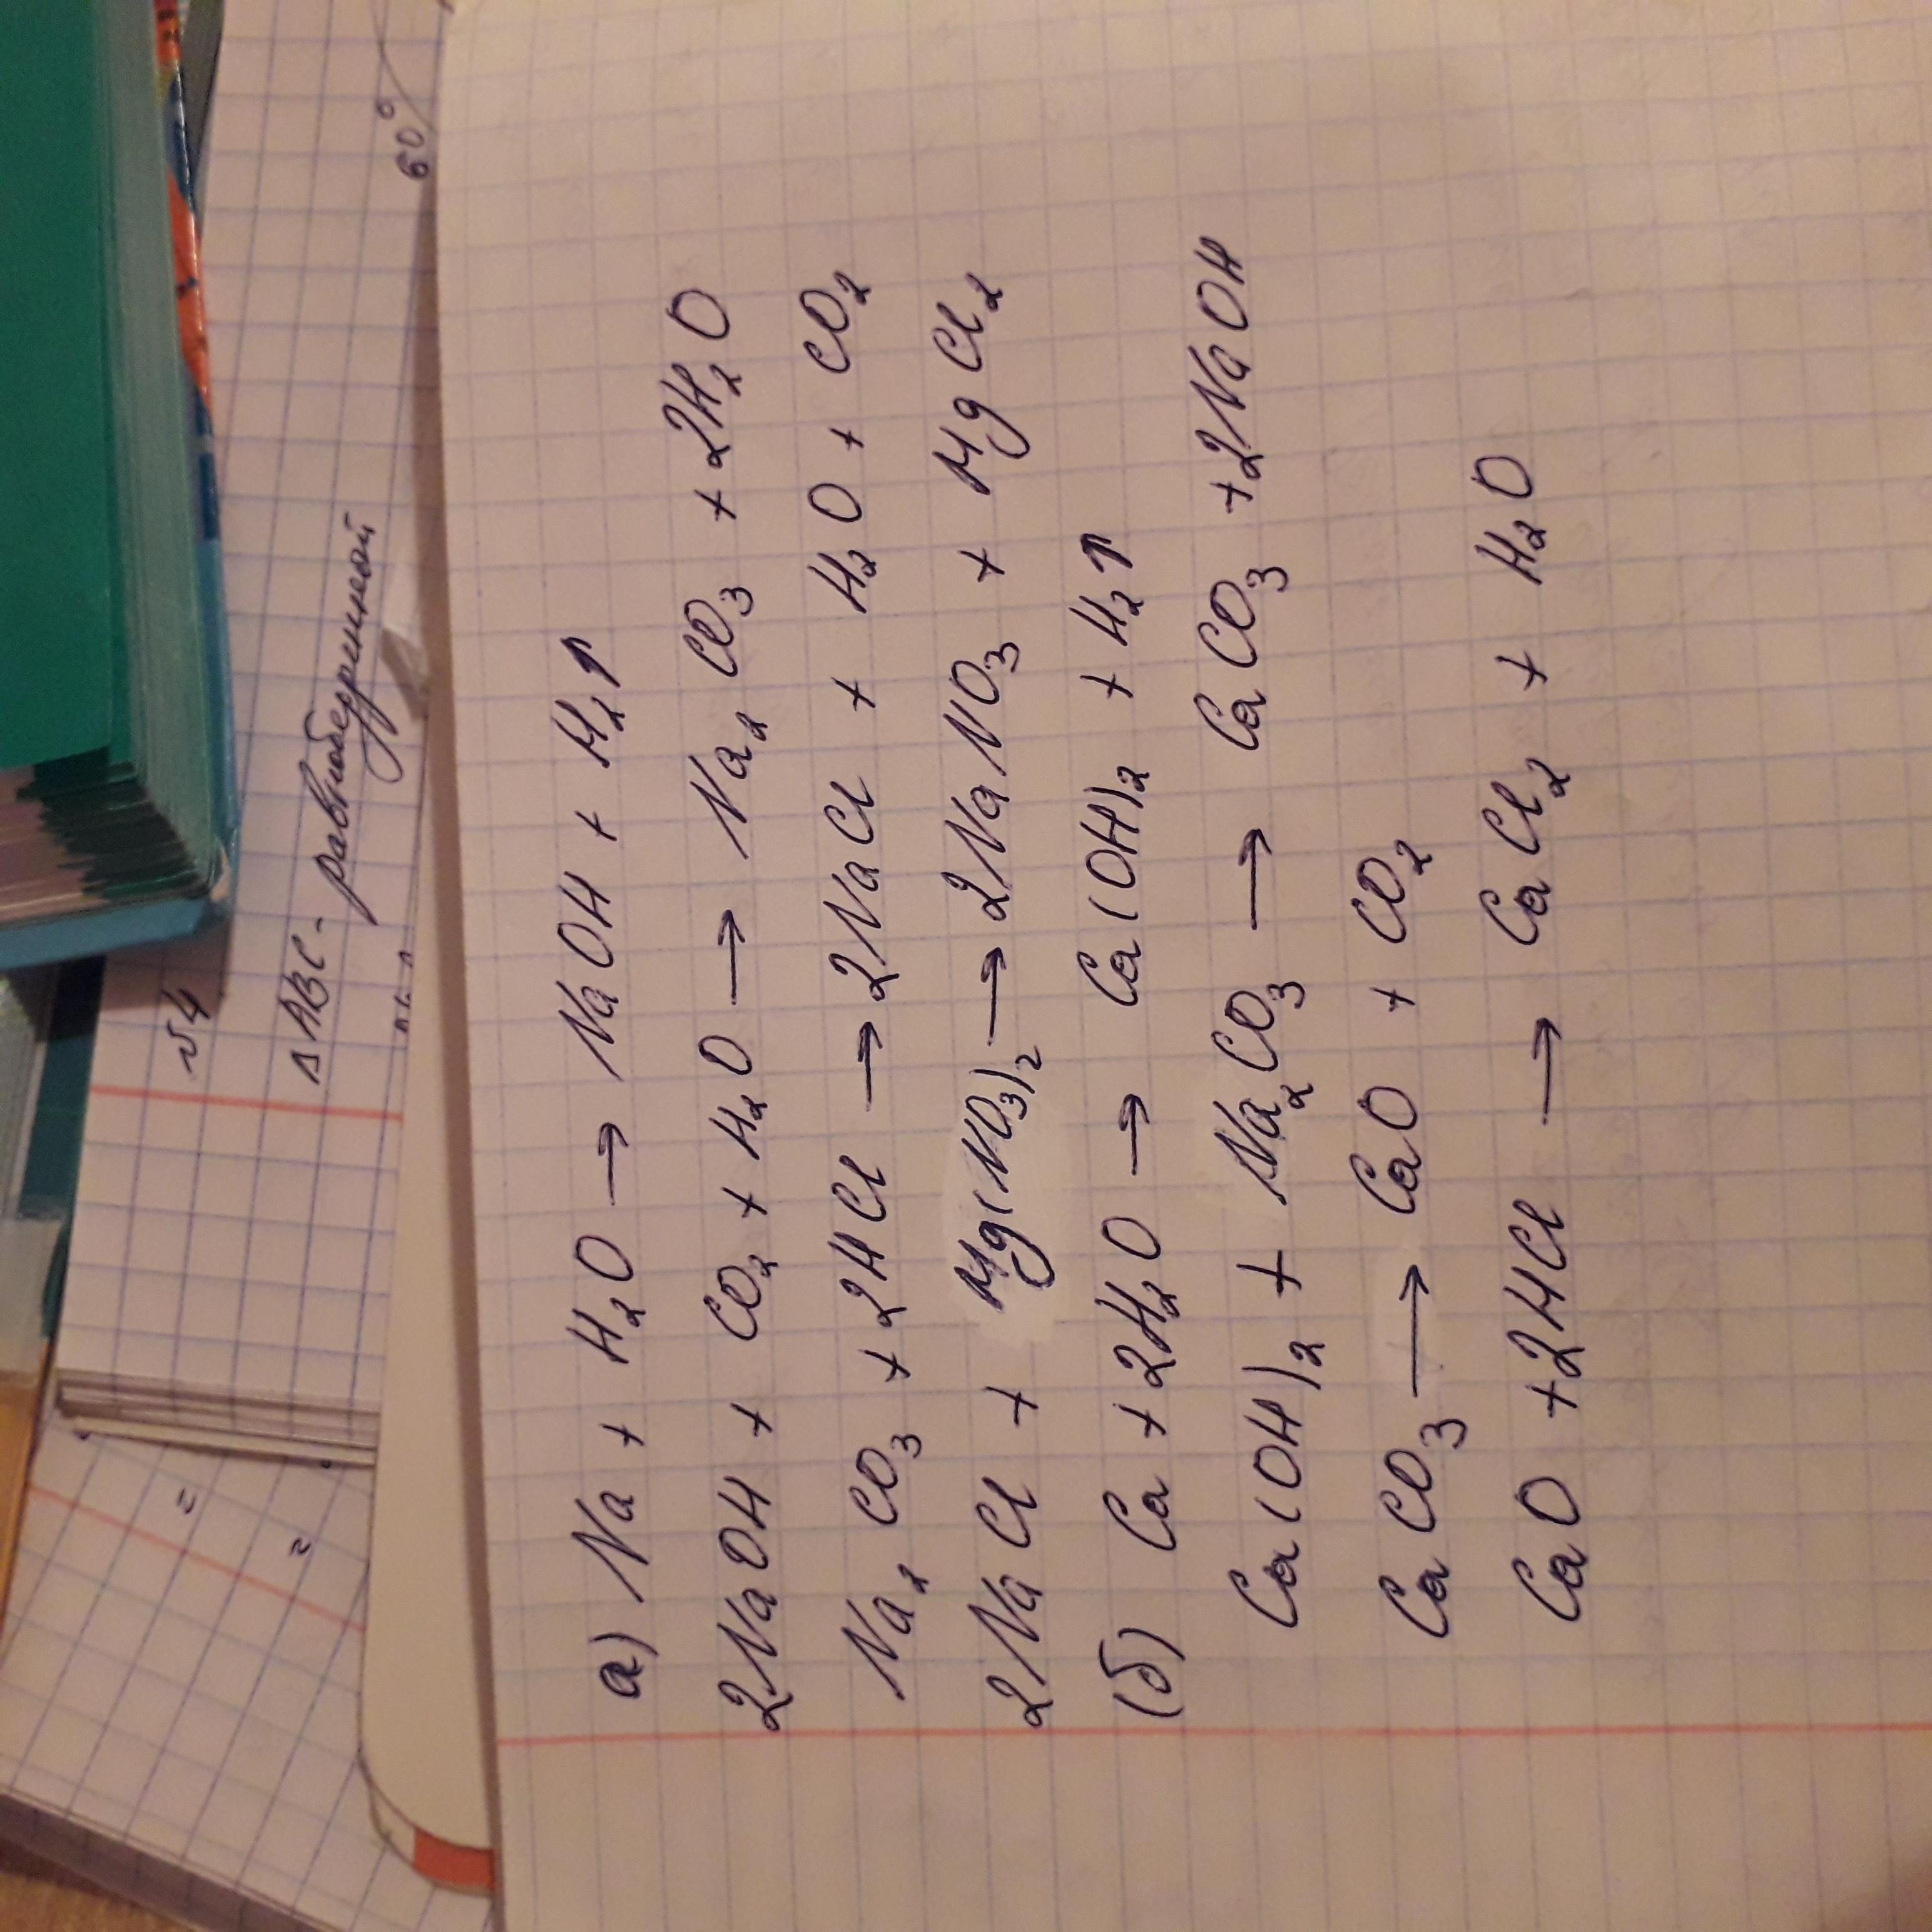 а) Na + H₂O → NaOH + H₂↑
2NaOH + CO₂ + H₂O → Na₂CO₃ + 2H₂O
Na₂CO₃ + 2HCl → 2NaCl + H₂O + CO₂
2NaCl + Mg(NO₃)₂ → 2NaNO₃ + MgCl₂
(б) Ca + 2H₂O → Ca(OH)₂ + H₂↑
Ca(OH)₂ + Na₂CO₃ → CaCO₃ + 2NaOH
CaCO₃ → CaO + CO₂
CaO + 2HCl → CaCl₂ + H₂O
√4
ΔABC - равнобедренной
60°
=
=